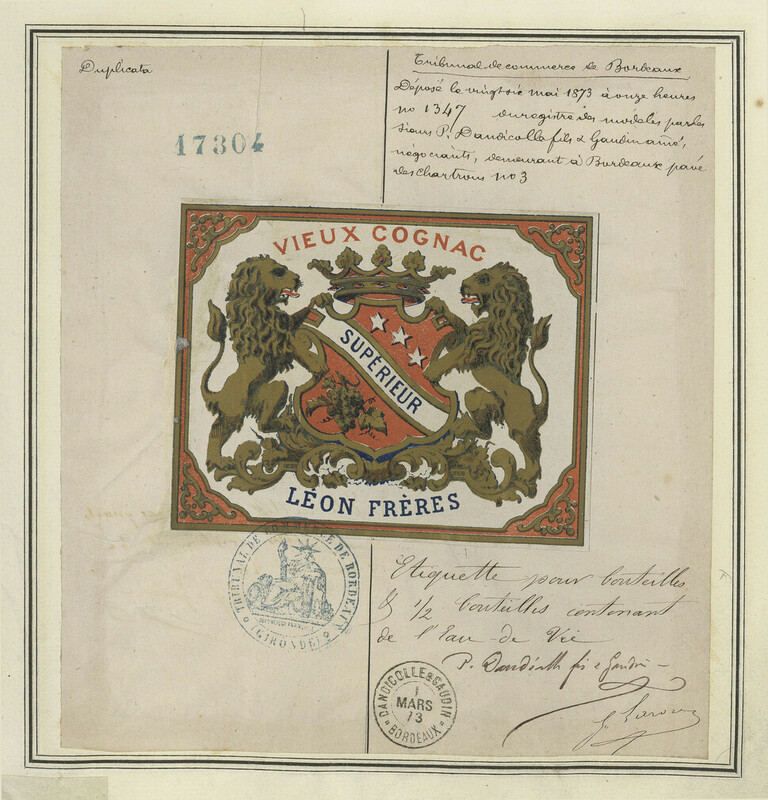 Duplicata
17304
Tribunal de commerce de Bordeaux
Déposé le vingt six mai 1873 à onze heures
no 1347 du registre des modèles par les
sieurs P. Dandicolle fils & Gaudin ainé,
négociants, demeurant à Bordeaux pavé
des Chartrons no 3
VIEUX COGNAC
SUPÉRIEUR
LÉON FRÈRES
TRIBUNAL DE COMMERCE DE BORDEAUX
(GIRONDE)
Etiquette pour bouteilles
& 1/2 bouteilles contenant
de l'Eau de Vie
P. Dandicolle fis & Gaudin
DANDICOLLE & GAUDIN
1
MARS
73
BORDEAUX